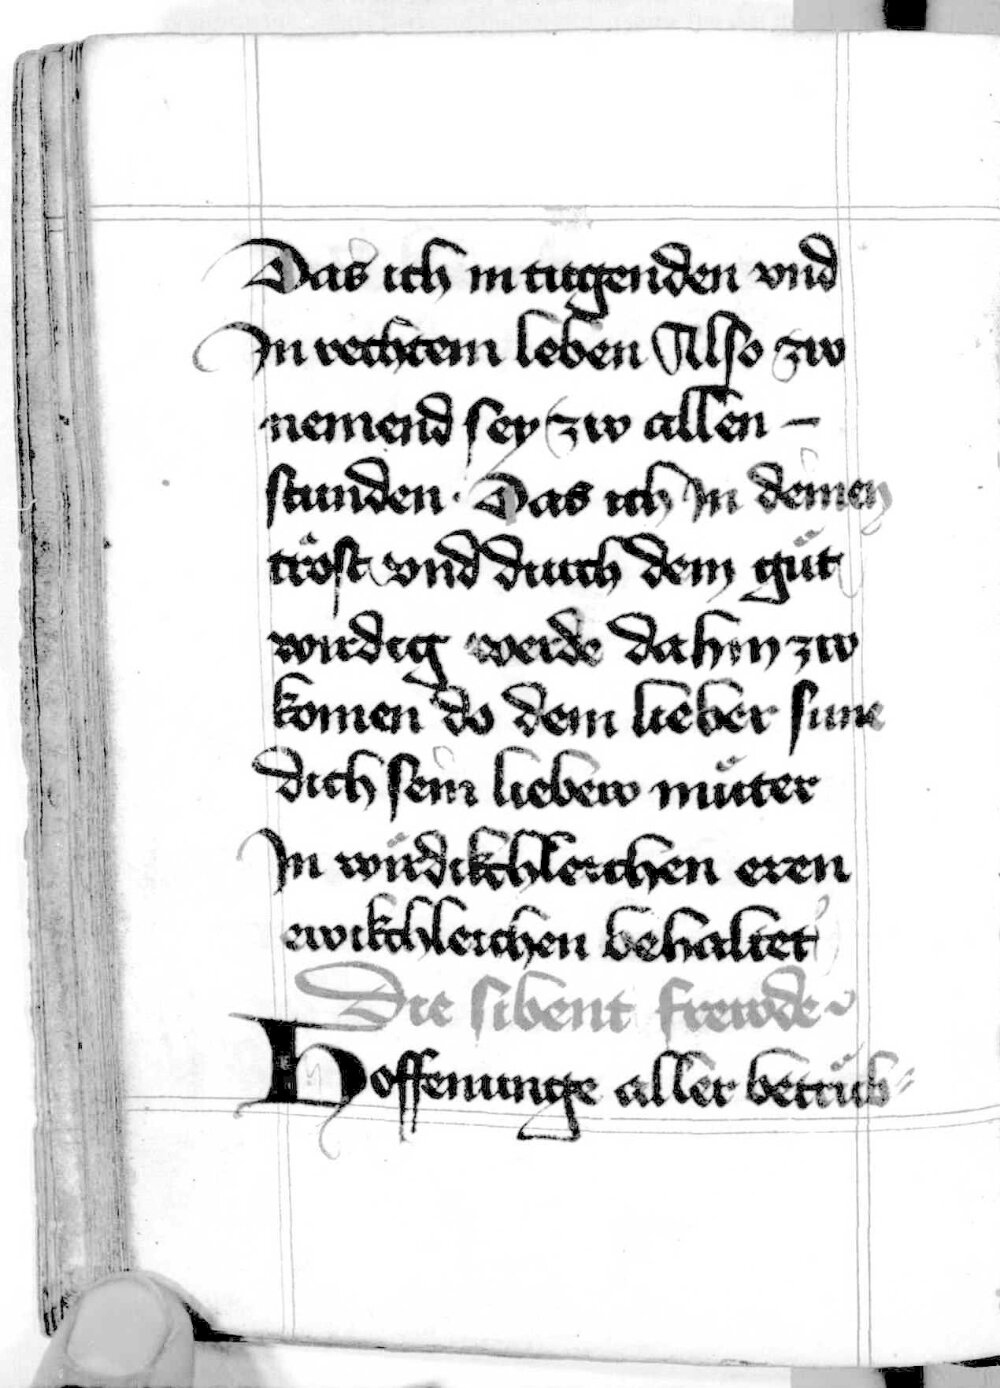 Das ich in tugenden vnd
In rechtem leben Also zw
nemend sey zw allen –
stunden. Das ich In deinen
tröst vnd durch dein güt
wirdig werde dahin zw
komen do dein lieber sune
dich sein liebew müter
In wirdikchleichen eren
ewikchleichen behaltet
Die sibent frewde
Hoffenunge aller betrüb⸗